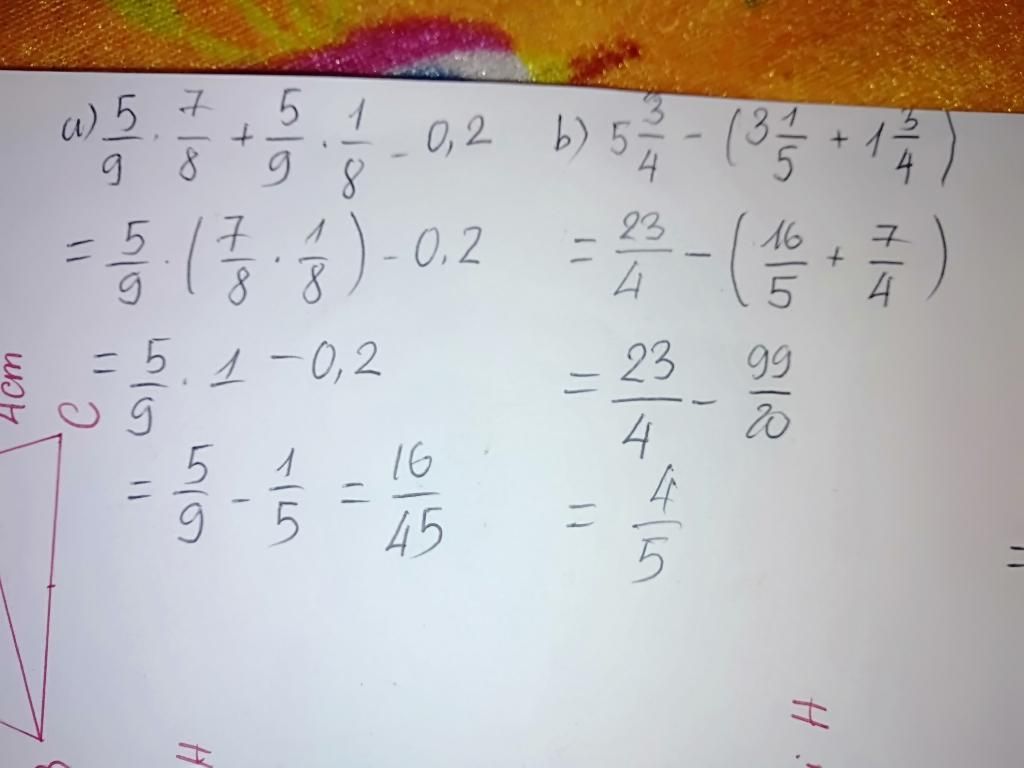 a) 5/9 · 7/8 + 5/9 · 1/8 - 0,2
= 5/9 · (7/8 · 1/8) - 0,2
= 5/9 · 1 - 0,2
= 5/9 - 1/5 = 16/45
b) 5 3/4 - (3 1/5 + 1 3/4)
= 23/4 - (16/5 + 7/4)
= 23/4 - 99/20
= 4/5
=
4cm
C
B
H
H